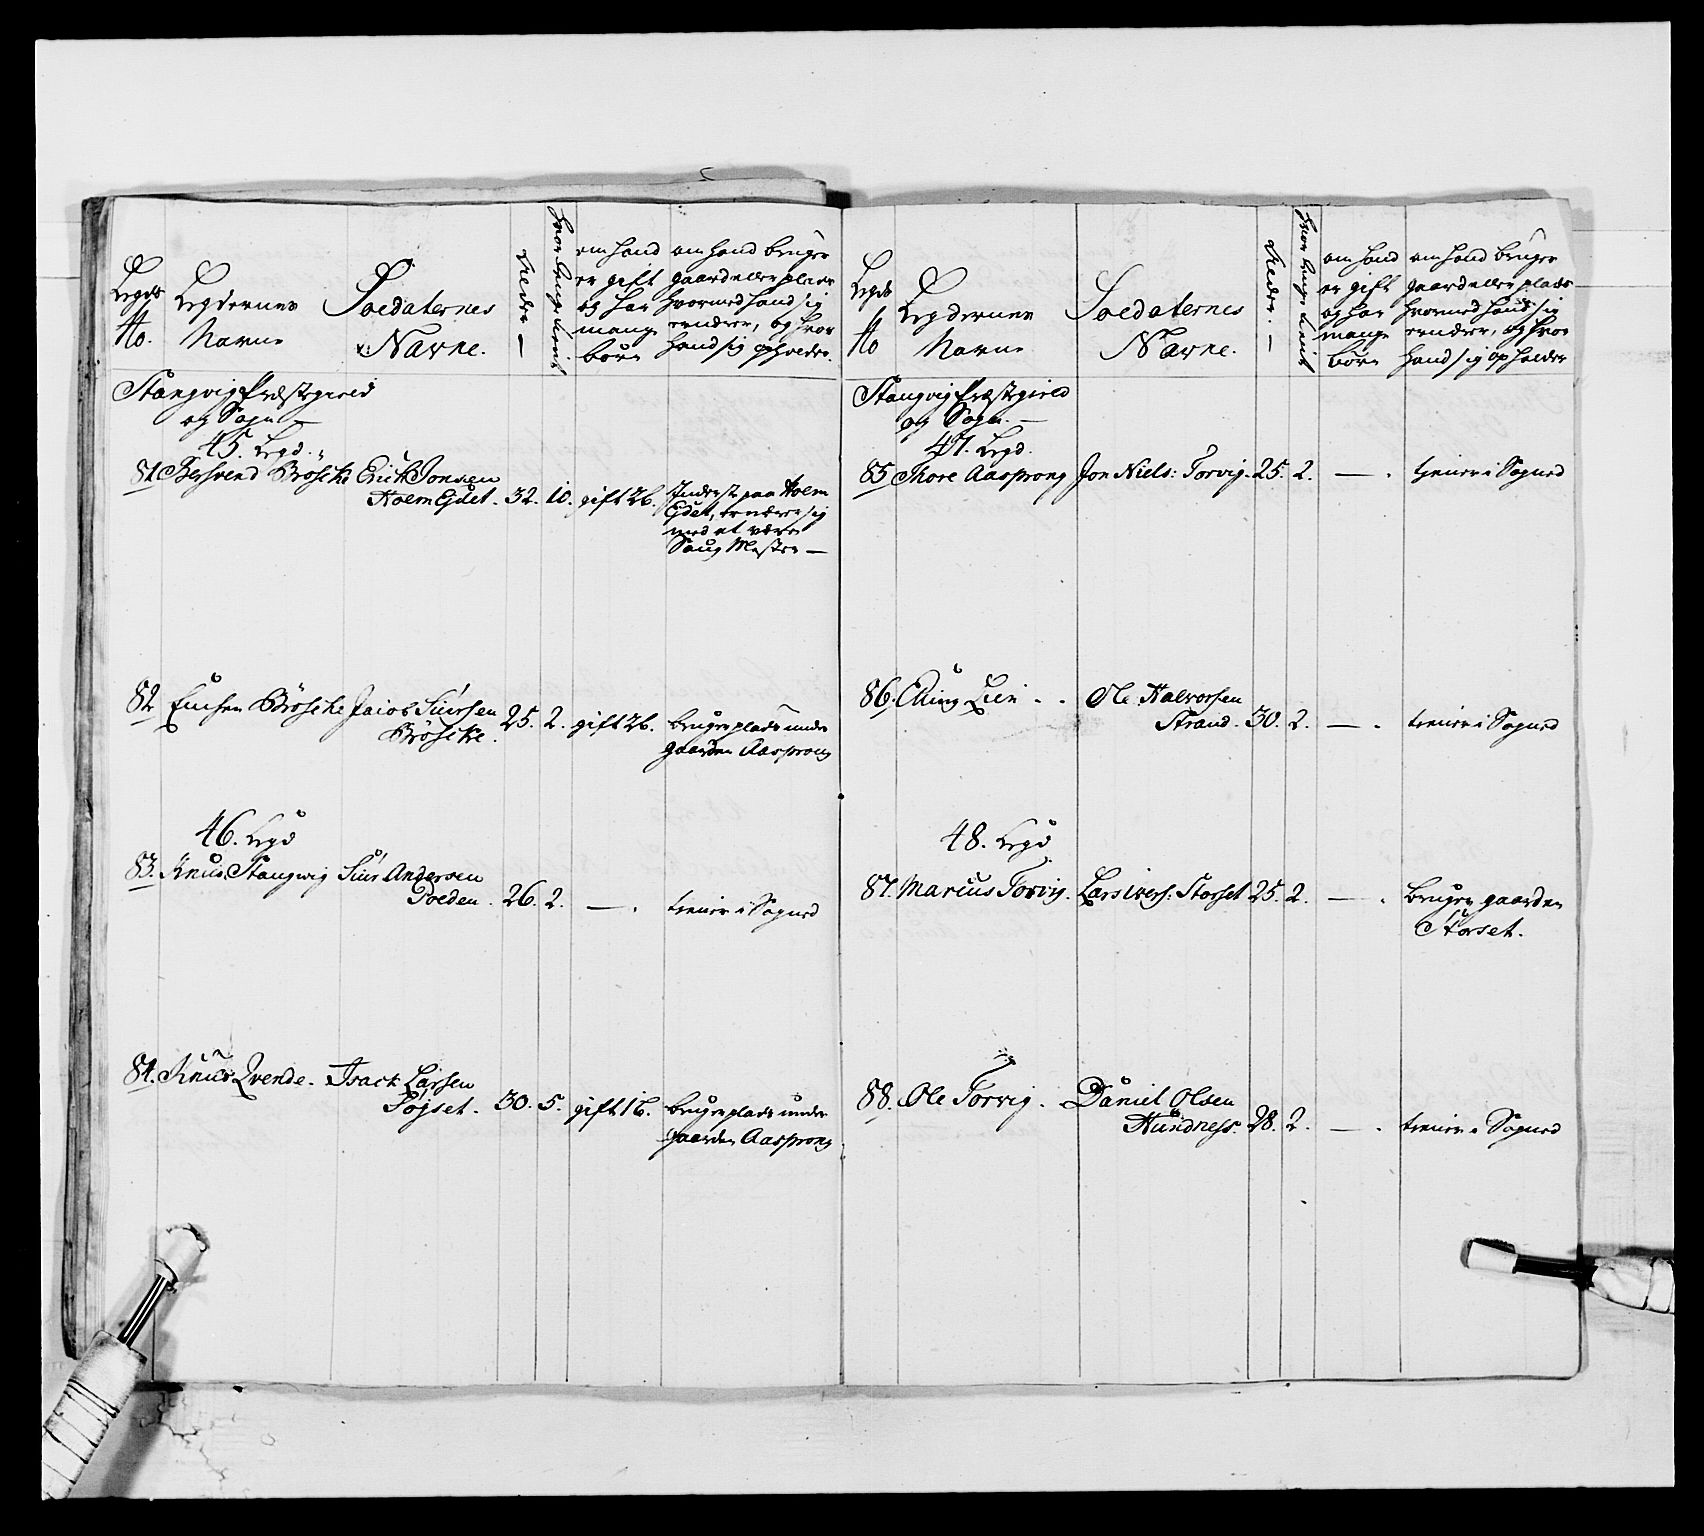 Legds
No.
Legdernes
Navne
Soldaternes
Navne.
Alder
hvor lenge tient
om hand
er gift
og har
mange
börn
om hand bruger
gaard eller plads
hvormed hand sig
ernærer, og hvor
hand sig opholder.
Stangvig Præstegield
og Sogn —
45. Legd.
81 Bersvend Bröske Erich Jonsen
Holm Ejdet. 32. 10. gift 2 b. Inderst paa Holm
Ejdet, ernærer sig
med at være
Saug Mester —
82 Einsen Bröske Jacob Siursen
Bröske. 25. 2. gift 2 b. bruger plads under
gaarden Aasprong
46. Legd
83. Knud Stangvig Siur Andersen
Poeden. 26. 2. — . tiener i Sognet
84. Knud Qvende. Isack Larsen
Söjset. 30. 5. gift 1 b. bruger plads under
gaarden Aasprong
Legds
No
Legdernes
Navne
Soldaternes
Navne.
Alder. —
hvor lenge tient
om hand
er gift
og har
mange
börn
om hand bruger
gaard eller plads
hvormed hand sig
ernærer, og hvor
hand sig opholder
Stangvig Præstegield
og Sogn. —
47. Legd.
85 Thore Aasprong Jon Niels: Torvig. 25. 2. — . tiener i Sognet
86. Elling Lien . . Ole Halvorsen
Strand. 30. 2. — . tiener i Sognet
48. Legd
87. Marcus Torvig. Lars Ivers: Storset 25. 2. — . bruger gaarden
Storset.
88. Ole Torvig. Daniel Olsen
Hundness. 28. 2. — . tiener i Sognet